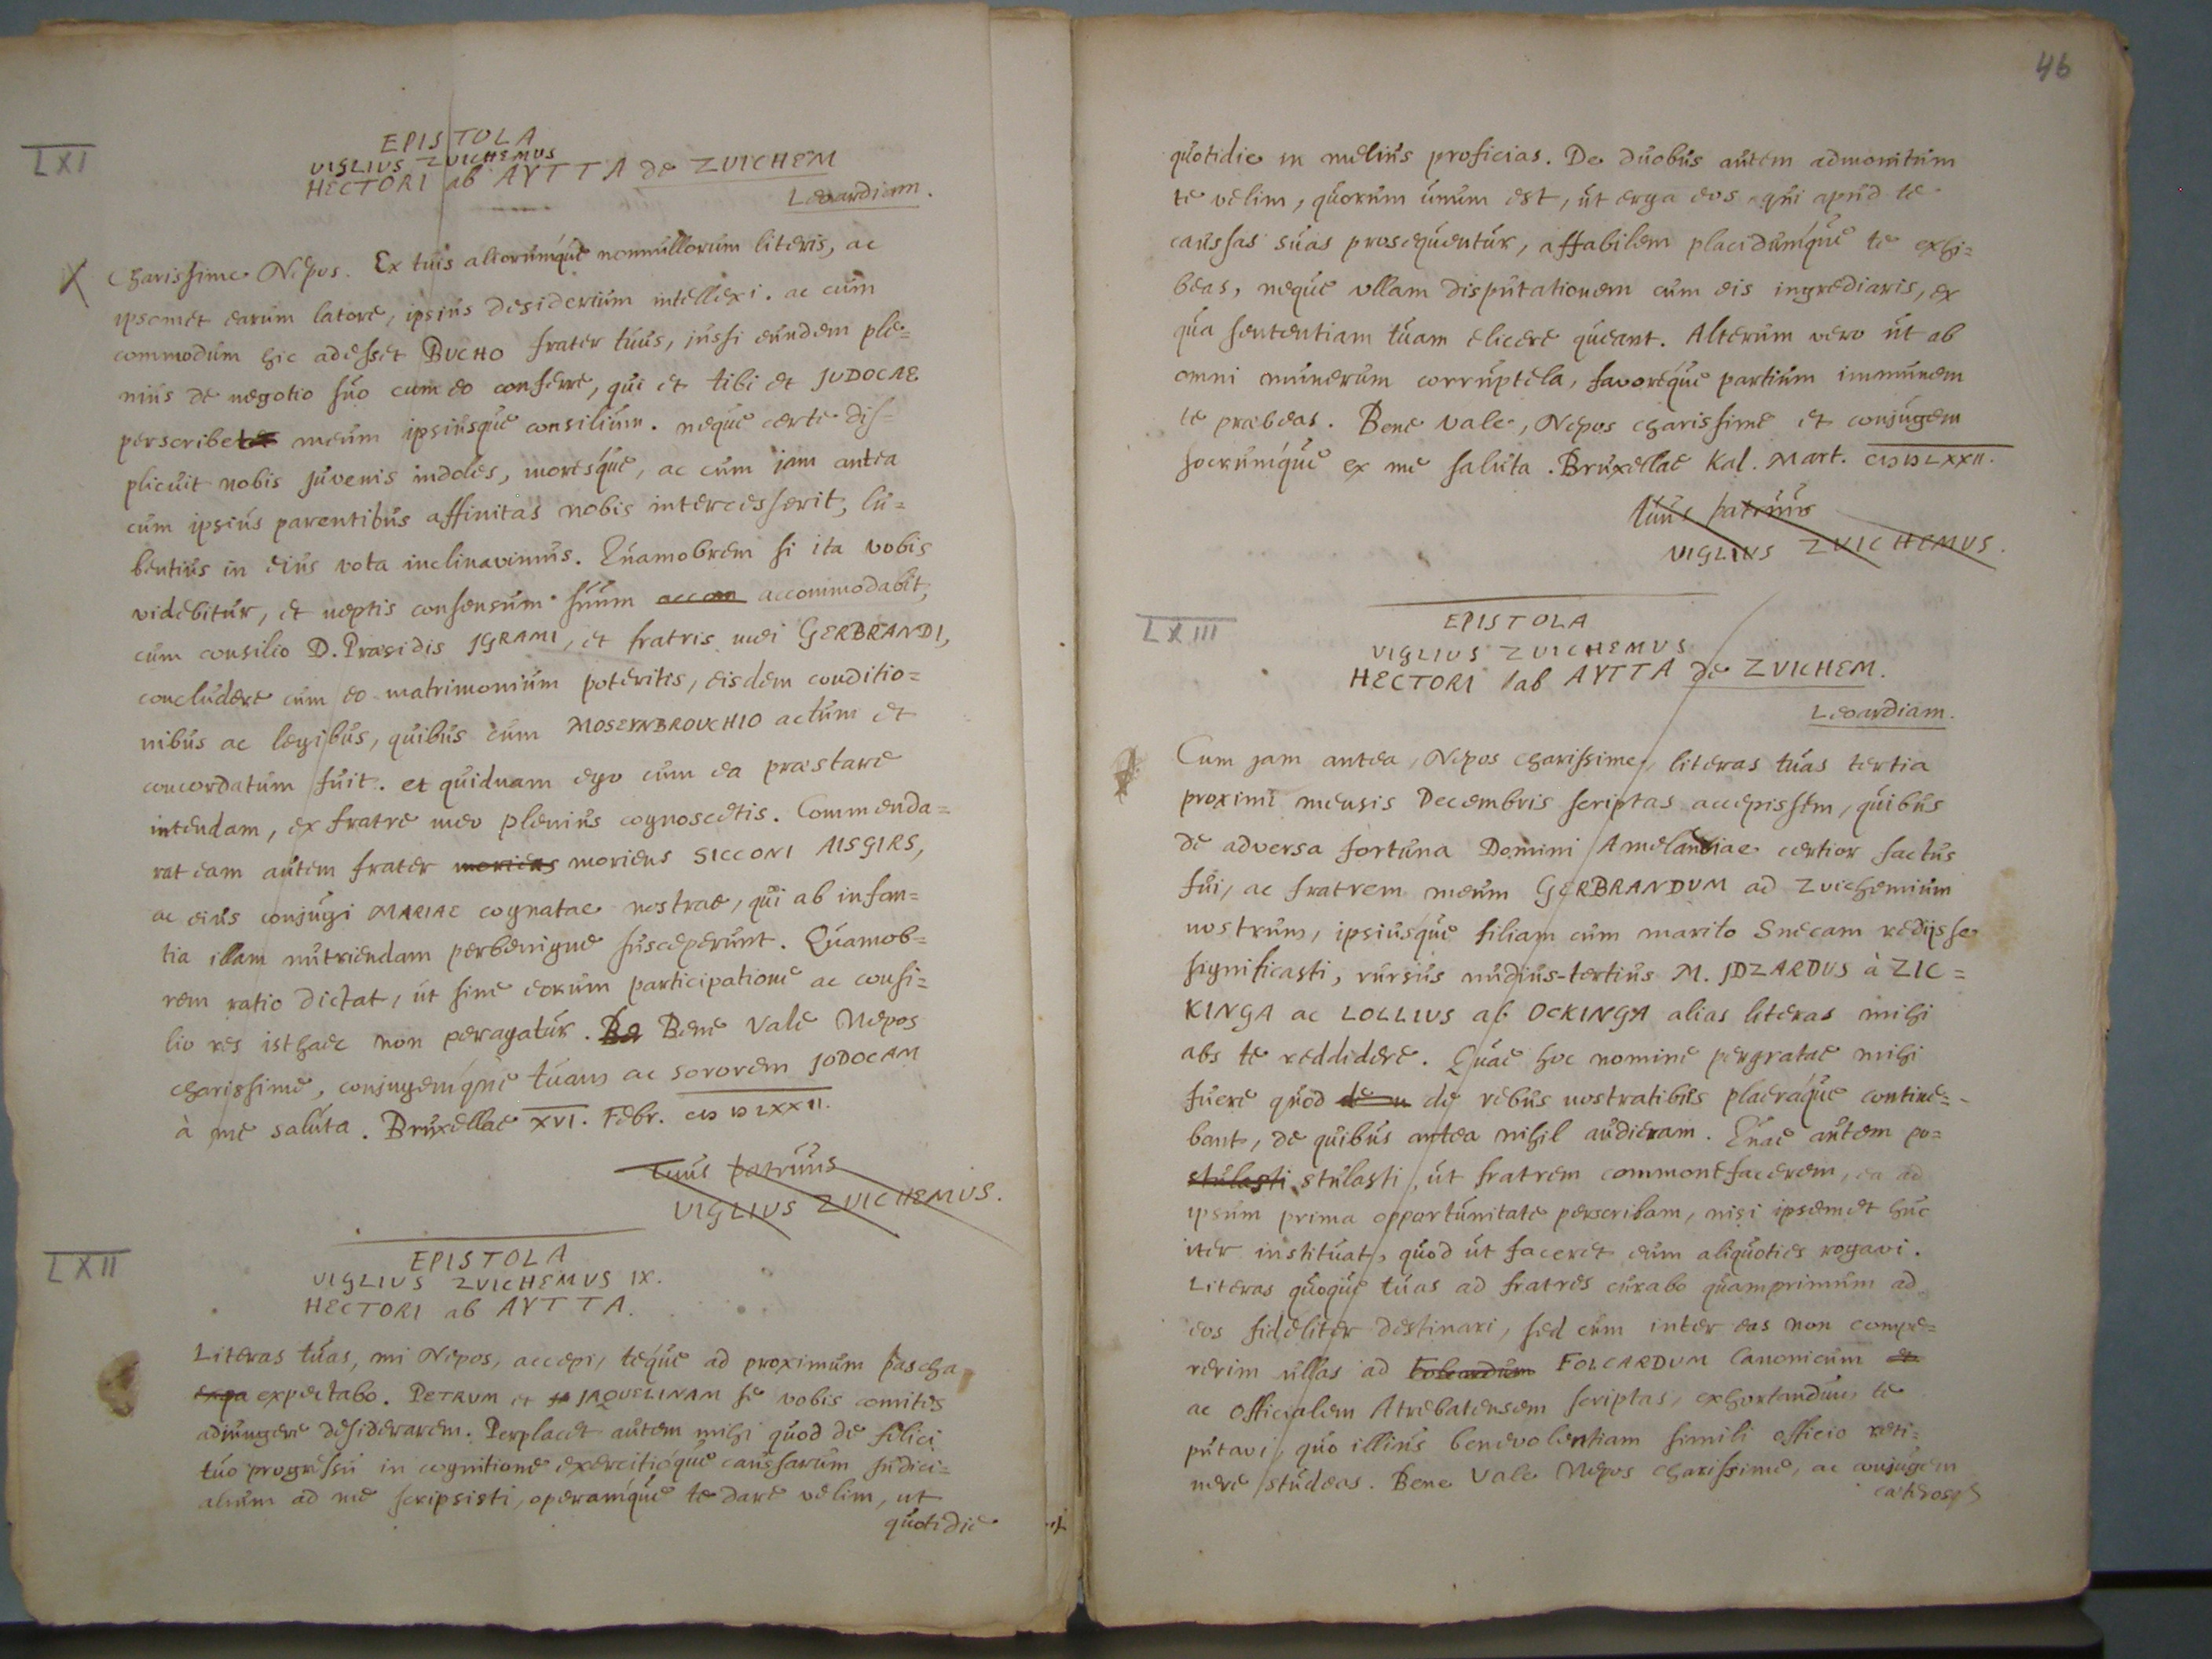 LXI
EPISTOLA
VIGLIUS ZVICHEMUS
HECTORI ab AYTTA de ZVICHEM
Leoardiam.
Charissime Nepos. Ex tuis aliorumque nonnullorum literis, ac
ipsomet earum latore, ipsius desiderium intellexi. ac cum
commodum hic adesset BUCHO frater tuus, jussi eundem ple=
nius de negotio suo cum eo conferre, qui et tibi et JUDOCAE
perscribet meum ipsiusque consilium. neque certe dis=
plicuit nobis juvenis indoles, moresque, ac cum jam antea
cum ipsius parentibus affinitas nobis intercesserit, lu=
bentius in eius vota inclinavimus. Quamobrem si ita vobis
videbitur, et neptis consensum suum accom accommodabit,
cum consilio D. Praesidis IGRAMI, et fratris mei GERBRANDI,
concludere cum eo matrimonium poteritis, eisdem conditio=
nibus ac legibus, quibus cum MOSEYNBROUCHIO actum et
concordatum fuit. et quidnam ego cum ea praestare
intendam, ex fratre meo plenius cognoscetis. Commenda=
rat eam autem frater moriens moriens SICCONI AISGIRS,
ac eius conjugi MARIAE cognatae nostrae, qui ab infan=
tia illam nutriendam perbenigne susceperunt. Quamob=
rem ratio dictat, ut sine eorum participatione ac consi=
lio res isthaec non peragatur. Be Bene Vale Nepos
charissime, conjugemque tuam ac sororem JODOCAM
à me saluta. Bruxellae XVI. Febr. CIƆ IƆ LXXII.
tuus patruus
VIGLIUS ZVICHEMUS.
LXII
EPISTOLA
VIGLIUS ZVICHEMUS IX.
HECTORI ab AYTTA.
Literas tuas, mi Nepos, accepi, teque ad proximum pascha
expectabo. PETRUM et JAQUELINAM se vobis comites
adjungere desiderarem. Perplacet autem mihi quod de felici
tuo progressu in cognitione exercitioque caussarum judici=
alium ad me scripsisti, operamque te dare velim, ut
quotidie
46
quotidie in melius proficias. De duobus autem admonitum
te velim, quorum unum est, ut erga eos qui apud te
caussas suas prosequentur, affabilem placidumque te exhi=
beas, neque ullam disputationem cum eis ingrediaris, ex
qua sententiam tuam elicere queant. Alterum vero ut ab
omni munerum corruptela, favoreque partium immunem
te praebeas. Bene vale, Nepos charissime et conjugem
socrumque ex me saluta. Bruxellae Kal. Mart. CIƆ IƆ LXXII.
tuus patruus
VIGLIUS ZVICHEMUS.
LXIII
EPISTOLA
VIGLIUS ZVICHEMUS
HECTORI ab AYTTA de ZVICHEM.
Leoardiam.
Cum jam antea, Nepos charissime, literas tuas tertia
proximi mensis Decembris scriptas accepissem, quibus
de adversa fortuna Domini Amelandiae certior factus
fui, ac fratrem meum GERBRANDUM ad Zvichemium
nostrum, ipsiusque filiam cum marito Snecam redijsse
significasti, rursus nudius-tertius M. IDZARDUS à ZIC=
KINGA ac LOLLIUS ab OCKINGA alias literas mihi
abs te reddidere. Quae hoc nomine pergratae mihi
fuere quod de n de rebus nostratibus pleraque contine=
bant, de quibus antea nihil audieram. Quae autem po=
stulasti stulasti, ut fratrem commonefacerem, ea ad
ipsum prima opportunitate perscribam, nisi ipsemet huc
iter instituat, quod ut faceret eum aliquoties rogavi.
Literas quoque tuas ad fratres curabo quamprimum ad
eos fideliter destinari, sed cum inter eas non compe=
rerim ullas ad Folcardum FOLCARDUM Canonicum et
ac Officialem Atrebatensem scriptas, exhortandum te
putavi, quo illius benevolentiam simili officio reti=
nere studeas. Bene Vale Nepos charissime, ac conjugem
caeterosq